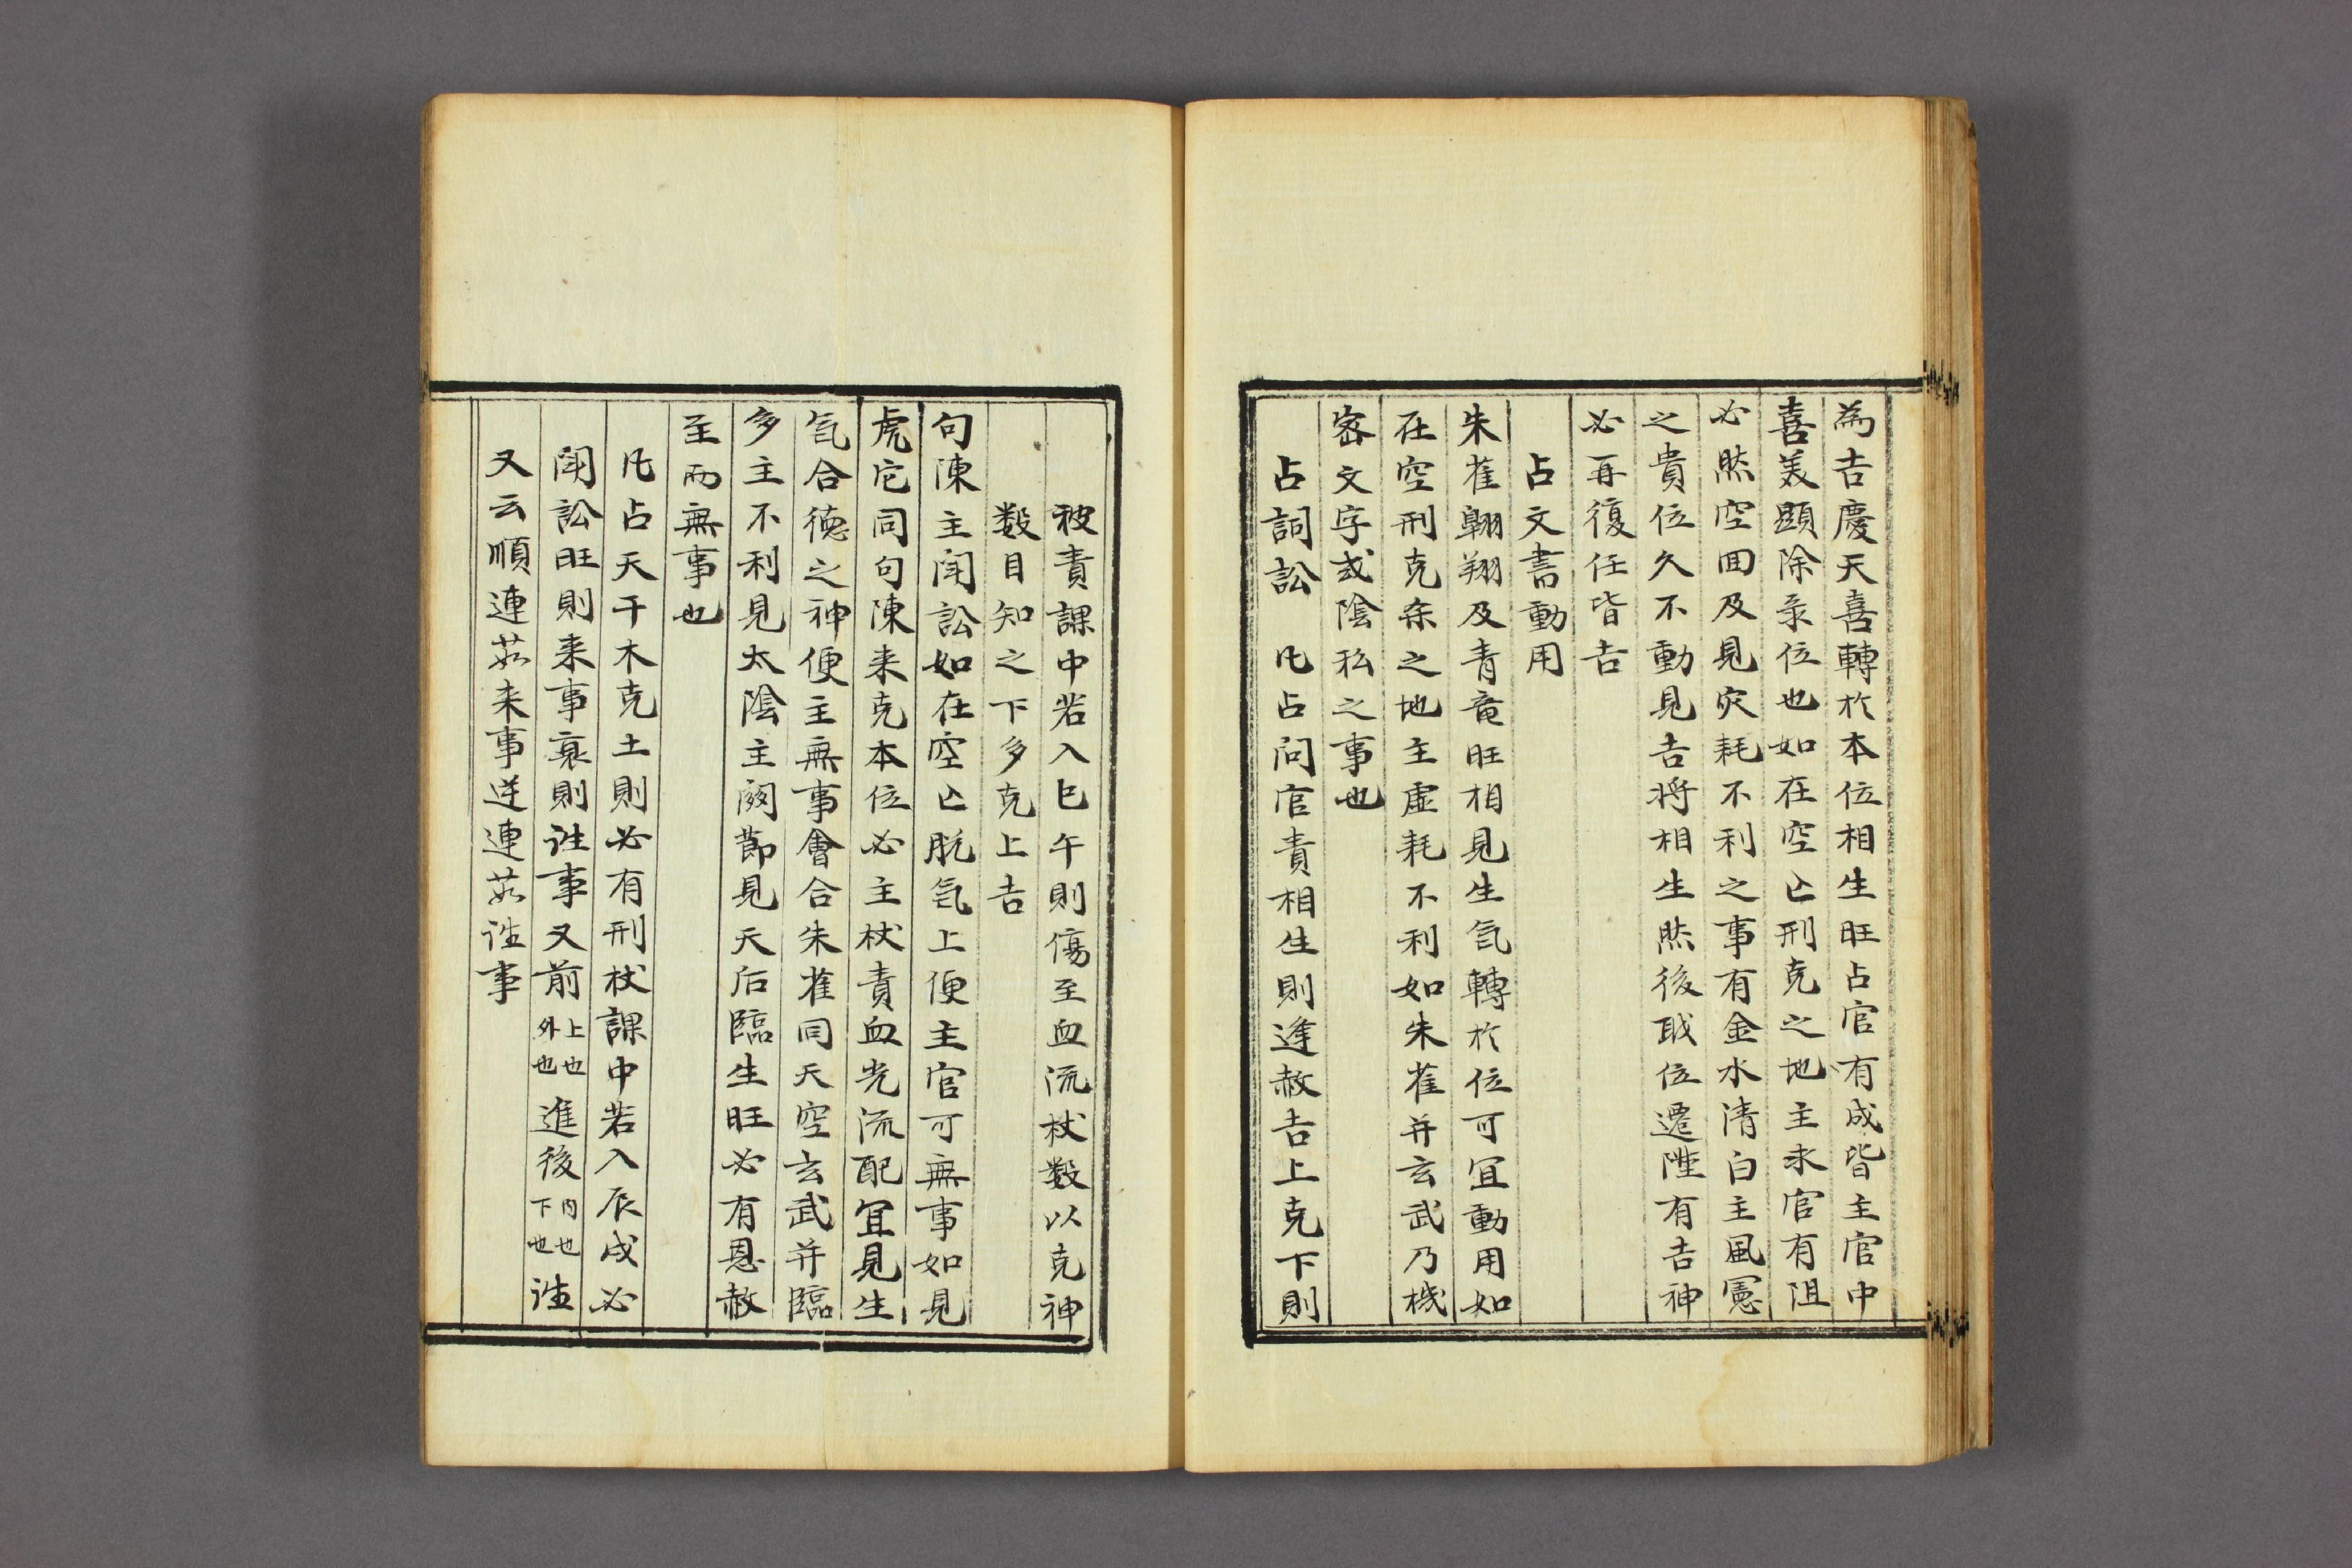 為吉慶天喜轉於本位相生旺占官有成皆主官中
喜美顕除录位也如在空亡刑克之地主求官有阻
必然空囬及見灾耗不利之事有金水清白主風憲
之貴位久不動見吉将相生然後戢位遷陞有吉神
必再復任皆吉
占文書動用
朱雀翺翔及青竜旺相見生氕轉於位可宜動用如
在空刑克杀之地主虚耗不利如朱雀并玄武乃機
宻文字或陰私之事也
占詞訟　凢占问官責相生則逢赦吉上克下則
被責課中若入巳午則傷至血流杖数以克神
数目知之下多克上吉
句陳主闘訟如在空亡脱氕上便主官可無事如見
虎它同句陳来克本位必主杖責血光流配宜見生
氕合德之神便主無事會合朱雀同天空玄武并臨
多主不利見太陰主関節見天后臨生旺必有恩赦
至而無事也
凢占天干木克土則必有刑杖課中若入辰戌必
闘訟旺則来事衰則往事又前上也外也進後内也下也往
又云順連茹来事逆連茹往事